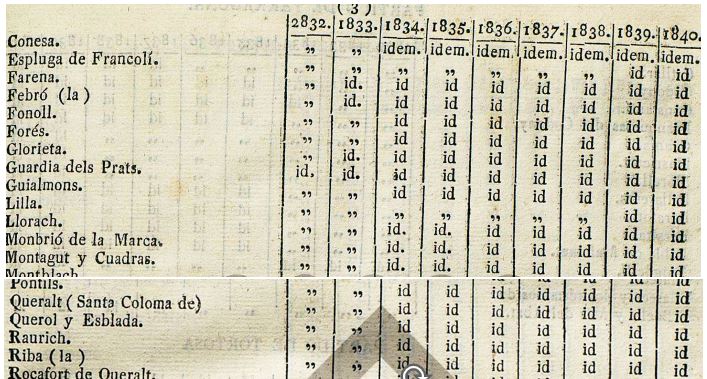 3 )
2832. 1833. 1834. 1835. 1836. 1837. 1838. 1839. 1840.
Conesa. „ „ idem. idem. idem. idem. idem. idem. idem.
Espluga de Francolí. „ „ „ „ „ „ „ id id
Farena. „ id. id id id id id id id
Febró (la) „ id. id id id id id id id
Fonoll. „ „ id id id id id id id
Forés. „ „ id id id id id id id
Glorieta. „ id. id id id id id id id
Guardia dels Prats. id. id. id id id id id id id
Guialmons. „ „ id id id id id id id
Lilla. „ „ „ „ „ „ „ id id
Llorach. „ „ id. id. id id id id id
Monbrió de la Marca. „ „ id. id. id id id id id
Montagut y Cuadras. „ „ id. id. id id id id id
Montblach
Pontils. „ „ id id id id id id id
Queralt (Santa Coloma de) „ „ id id id id id id id
Querol y Esblada. „ „ id id id id id id id
Raurich. „ „ id id id id id id id
Riba (la) „ „ id id id id id id id
Rocafort de Queralt.